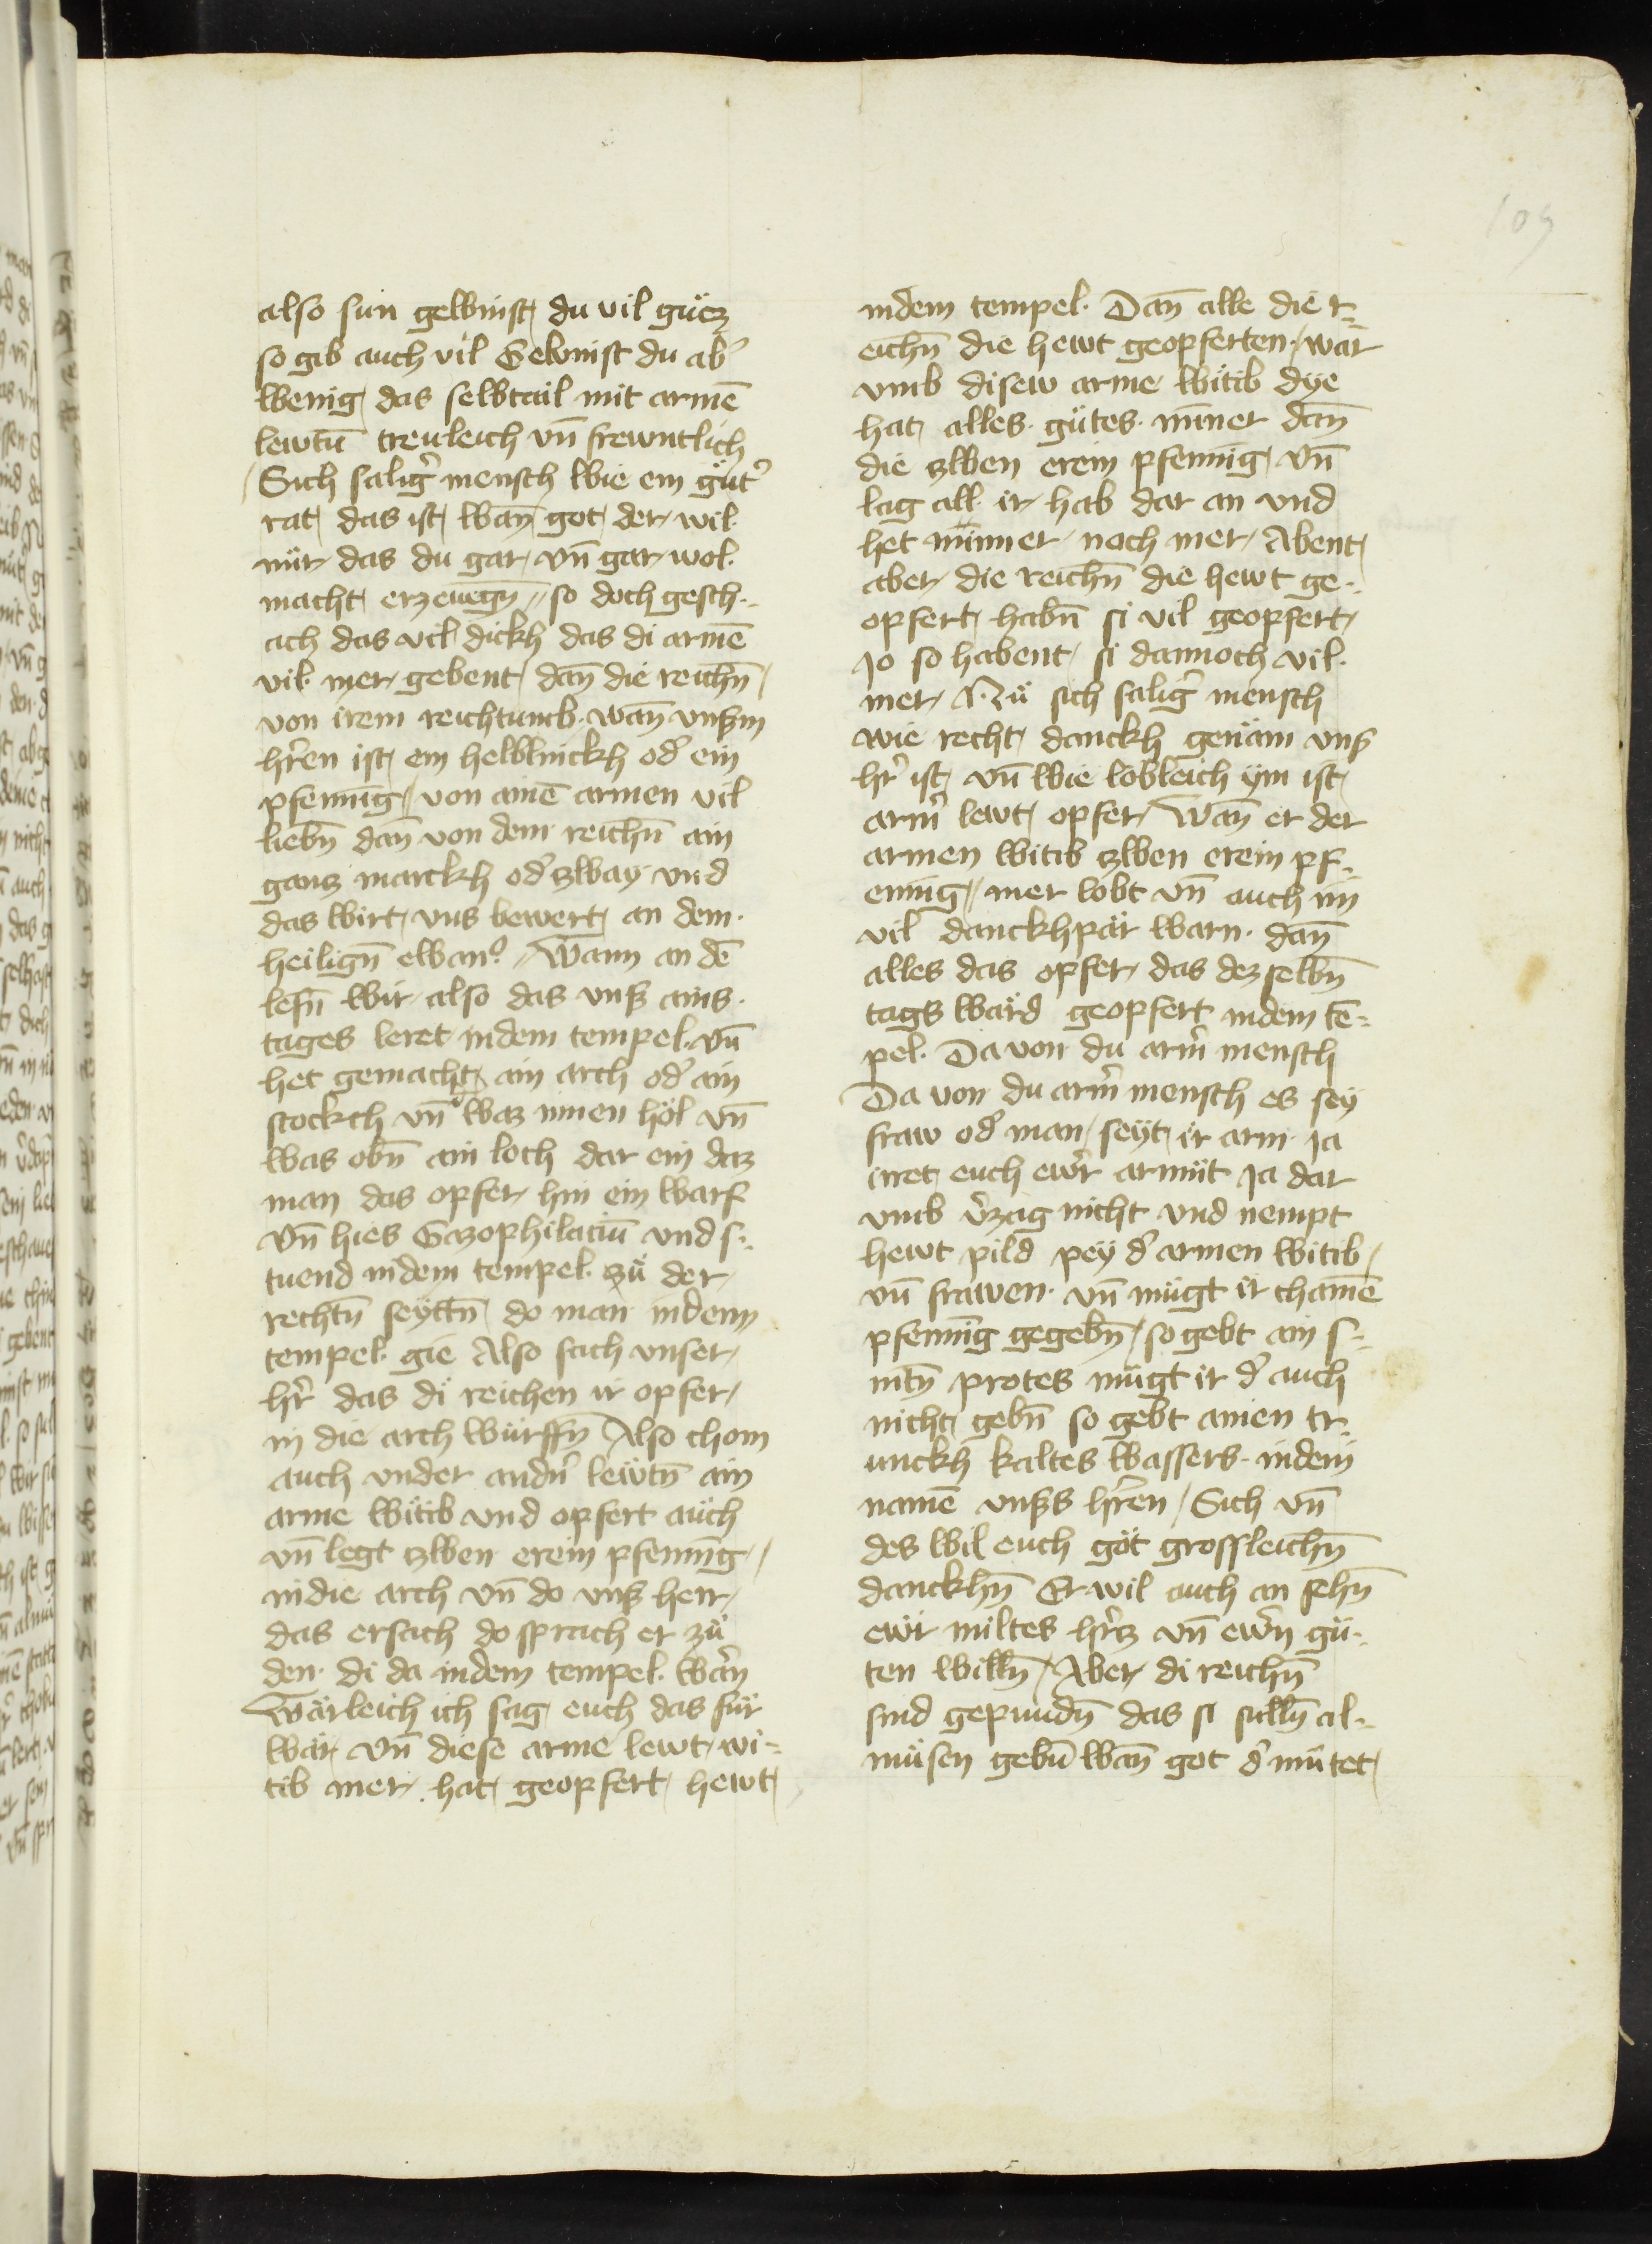 109
also sun gewinst du vil guͤcz
so gib auch vil Gewinst du ab᷑
wenig das selbtail mit armē
lewtn̄ treuleich vn̄ frewntlich
Sich salig᷑ mensch wie ein guͤt᷑
rat das ist wan̄ got der wil
nür das du gar vn̄ gar wol
macht erzeuegn̄ so doch gesch-
ach das vil dickh das di armē
vil mer gebent dan̄ die reichn̄
von irem reichtumb wan̄ vnßm
hr̄en ist ein helblinckh od᷑ ein
pfenning von ainē armen vil
liebn̄ dan̄ von dem reichn̄ ain
gancz marckh od᷑ zway vnd
das wirt vns bewert an dem
heilign̄ ewan᷑ Wann an dē
lesn̄ wir also das vnß ains
tages leret indem tempel vn̄
het gemacht ain arch od᷑ ain
stockch vn̄ waz innen höl vn̄
was obn̄ ain loch dar ein daz
man das opfer hin ein warf
vn̄ hies Gazophilaciū vnd s-
tuend indem tempel zuͤ der
rechtn̄ seyttn̄ do man indem
tempel gie Also sach vnser
hr̄ das di reichen ir opfer
in die arch würffn̄ Also chom
auch vnder andn᷑ lewtn̄ ain
arme witib vnd opfert auch
vn̄ legt zwen erein pfenning
indie arch vn̄ do vnß herr
das ersach do sprach er zuͤ
den di da indem tempel warn̄
Wärleich ich sag euch das für
wär vn̄ diese arme lewt wi-
tib mer hat geopfert hewt
indem tempel Dan̄ alle die r-
eichn̄ die hewt geopferten war
vmb disew arme witib dye
hat alles gütes minner dan̄
die zwen erein pfennig vn̄
lag all ir hab dar an vnd
het minner noch mer Abent
aber die reichn̄ die hewt ge-
opfert habn̄ si vil geopfert
Jo so habent si dannoch vil
mer Nuͤ sich salig᷑ mensch
wie recht danckh genäm vnß
hr̄ ist vn̄ wie lobleich ym ist
arm᷑ lewt opfer Wan̄ er der
armen witib zwen erein pf-
ening mer lobt vn̄ auch im
vil danckhpär warn dan̄
alles das opfer das dez selbn̄
tags ward geopfert indem tē-
pel Da von du arm᷑ mensch
Da von du arm᷑ mensch es sey
fraw od᷑ man seyt ir arm ja
irret euch ewr᷑ armüt Ja dar
vmb v᷑zag nicht vnd nempt
hewt pild pey d᷑ armen witib
vn̄ frawen vn̄ mügt ir chainē
pfenning gegebn̄ so gebt ain s-
nitn̄ protes mügt ir d᷑ auch
nicht gebn̄ so gebt ainen tr-
unckh kaltes wassers indem
namē vnßs hr̄en Sich vn̄
des wil euch got grossleichn̄
danckhn̄ Er wil auch an sehn̄
ewr miltes hr̄cz vn̄ ewrn̄ guͤ-
ten willn̄ Aber di reichn̄
sind gepundn̄ das si sulln̄ al-
müsen gebn̄ wan̄ got d᷑ mütet